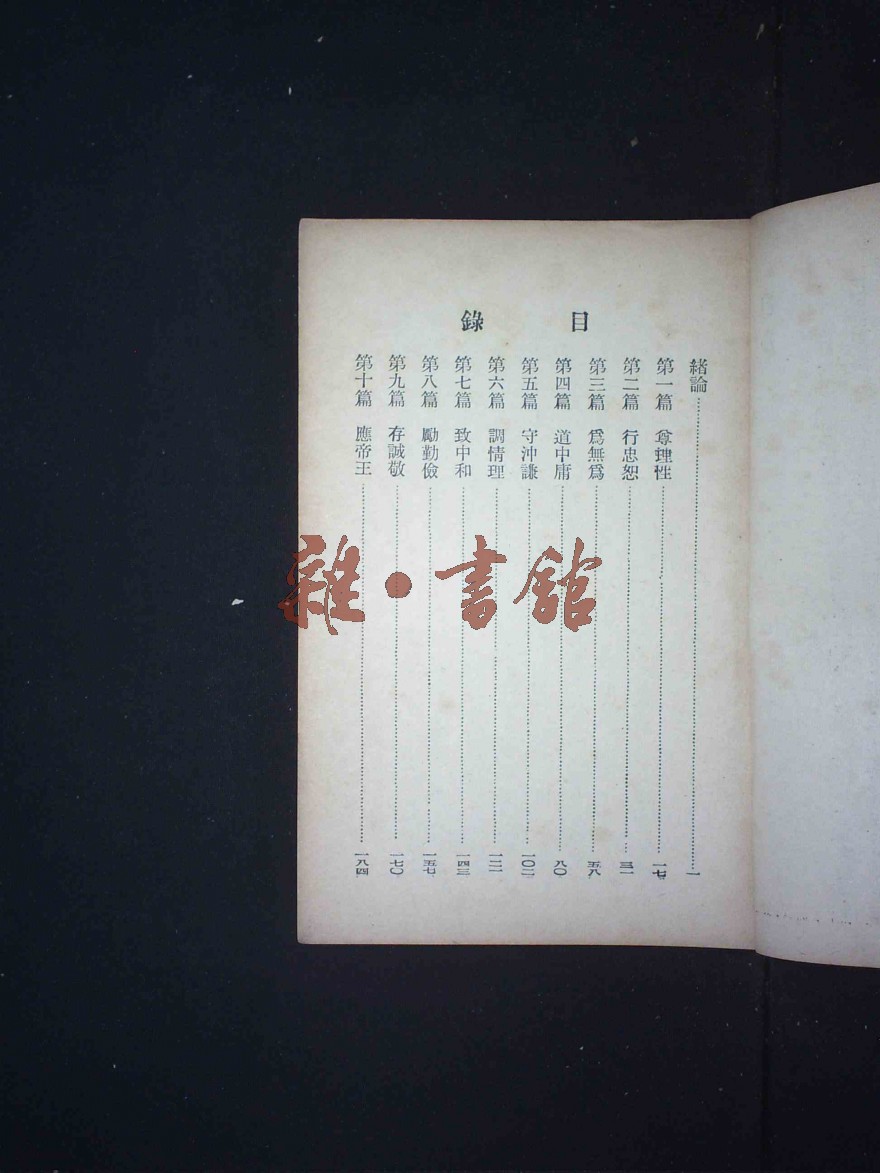 目錄
緒論……一
第一篇 尊理性……一七
第二篇 行忠恕……三一
第三篇 爲無爲……五八
第四篇 道中庸……八〇
第五篇 守沖謙……一〇二
第六篇 調情理……一二一
第七篇 致中和……一四三
第八篇 勵勤儉……一五七
第九篇 存誠敬……一七〇
第十篇 應帝王……一八四
雜·書館